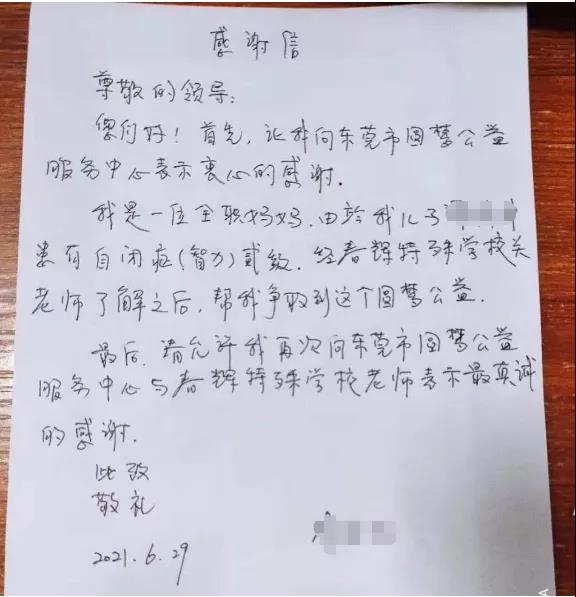 感谢信
尊敬的领导:
您们好！首先,让我向东莞市圆梦公益
服务中心表示衷心的感谢.
我是一位全职妈妈.由於我儿子
患有自闭症(智力)贰级.经春辉特殊学校关
老师了解之后,帮我争取到这个圆梦公益.
最后.请允许我再次向东莞市圆梦公益
服务中心与春辉特殊学校老师表示最真诚
的感谢.
此致
敬礼
2021.6.29